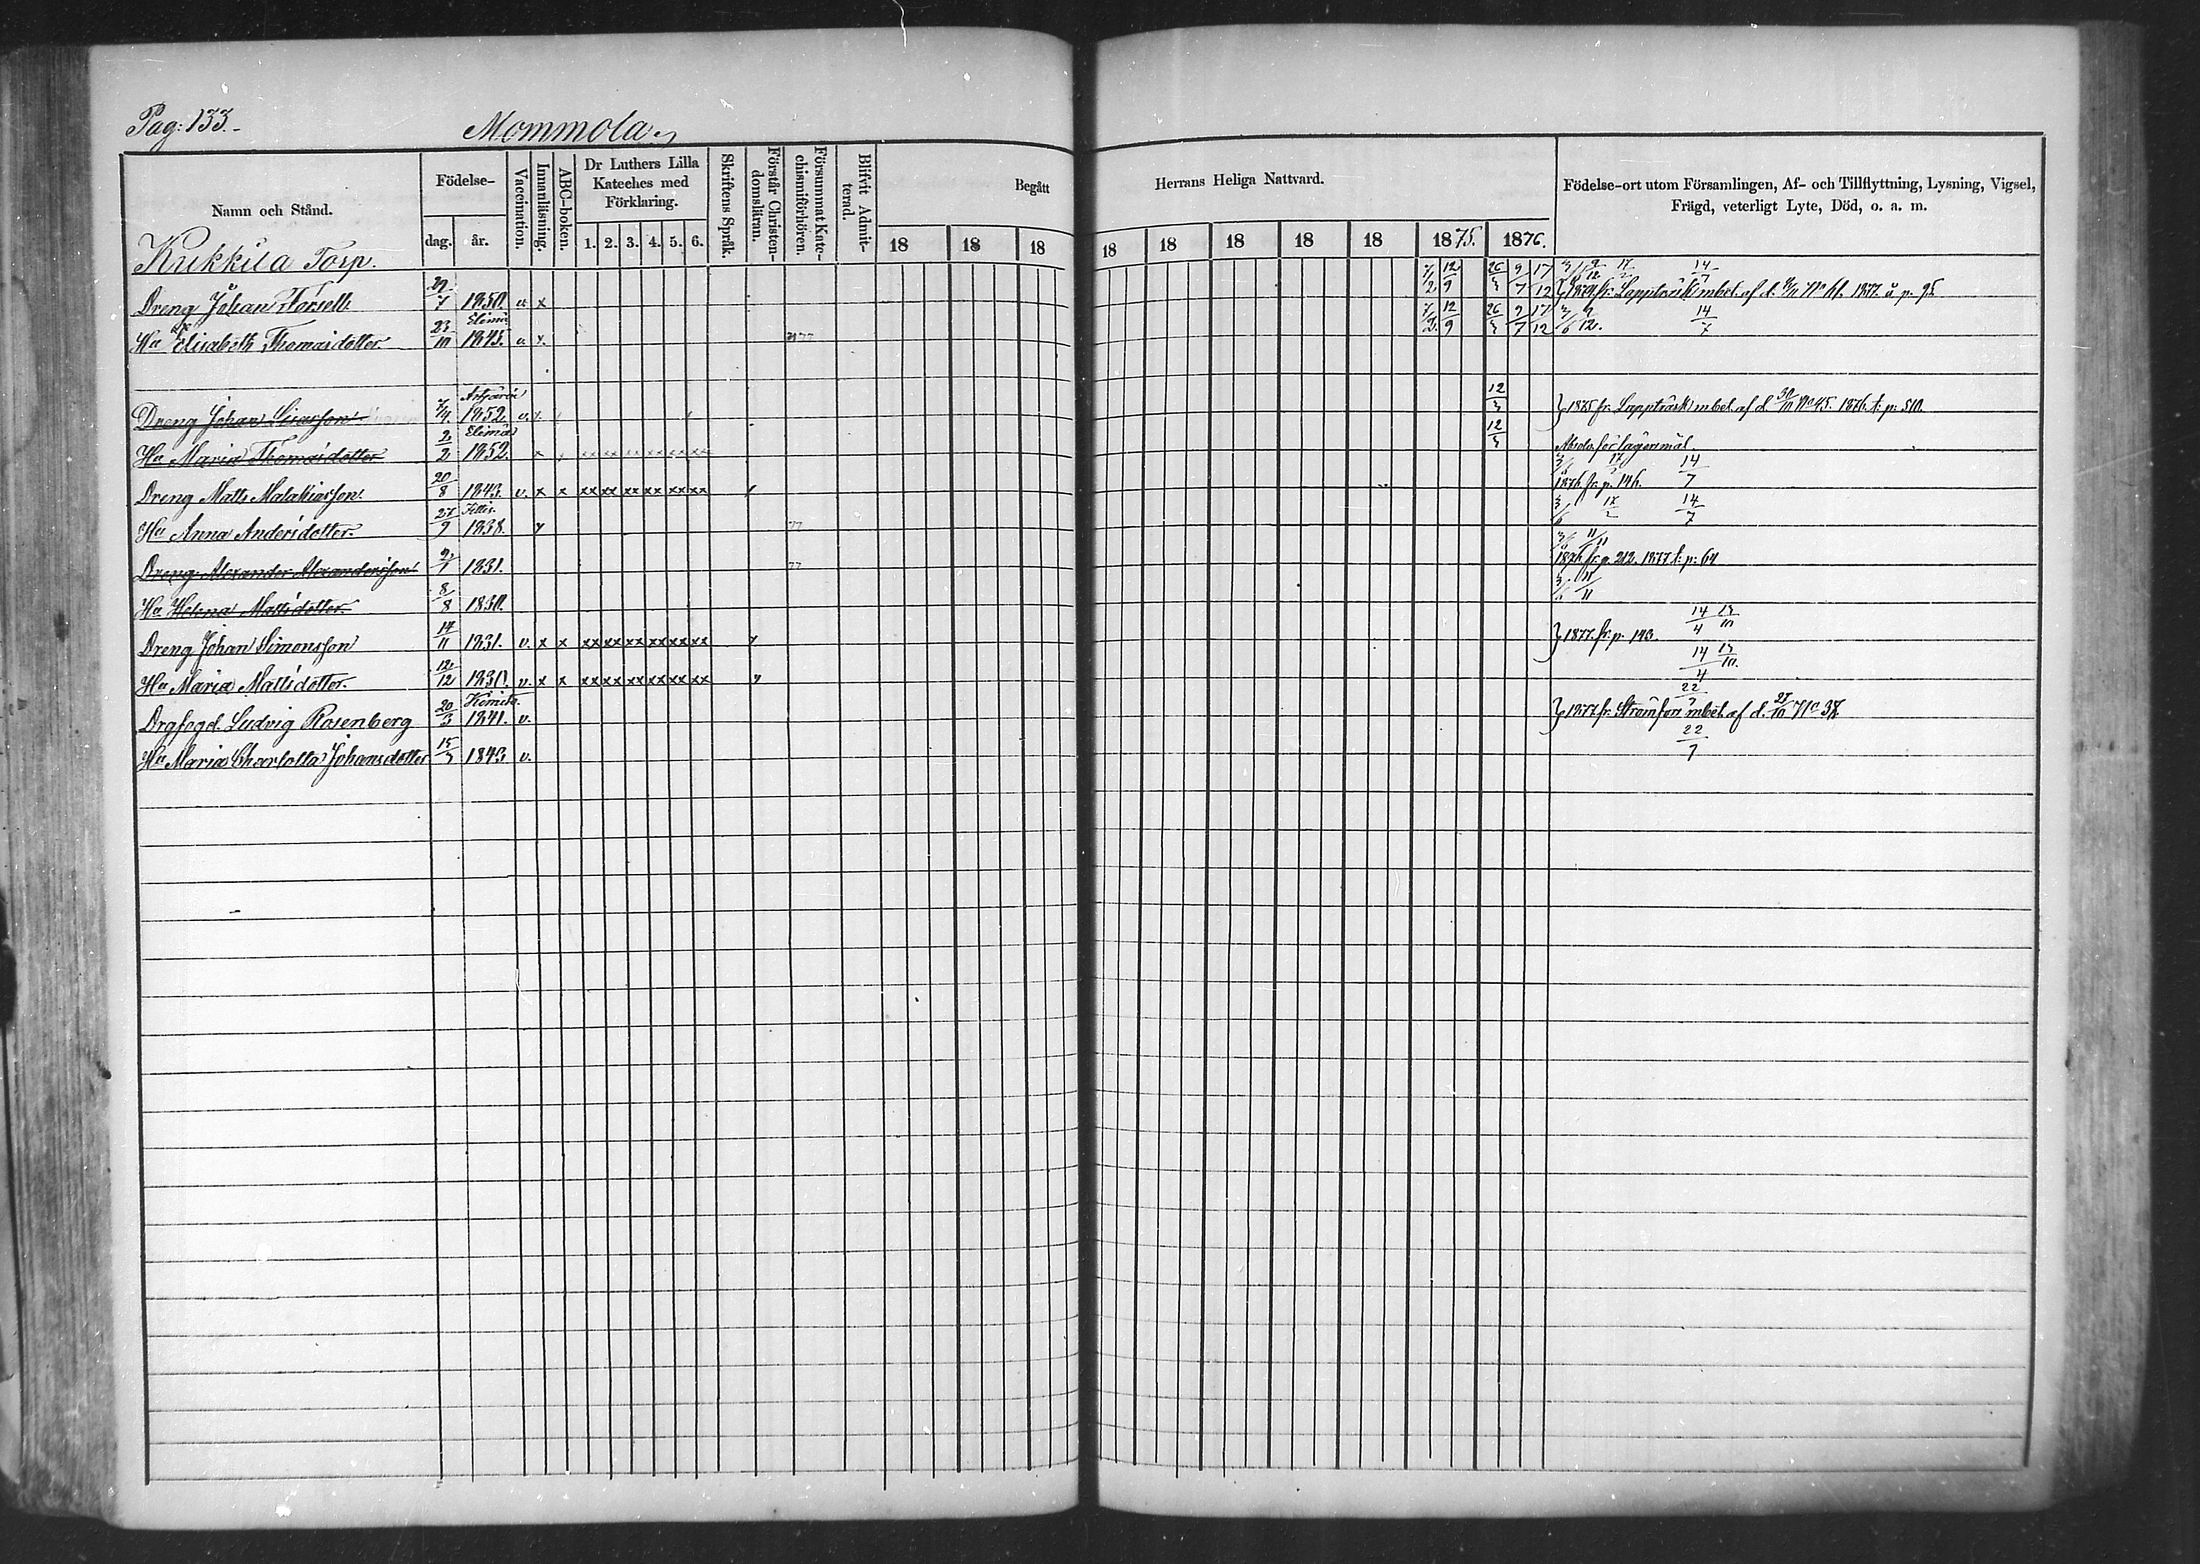 Pag: 133.
Mommola
Namn och Stånd.
Födelse-
dag.
år.
Vaccination.
Innanläsning.
ABC-boken.
Dr Luthers Lilla
Kateches med
Förklaring.
1. 2. 3. 4. 5. 6.
Skriftens Språk.
Förstår Christen-
domsläran.
Försummat Kate-
chismiförhören.
Blifvit Admit-
terad.
Begått
Herrans Heliga Nattvard.
18 18 18 18 18 18 18 18 1875. 1876.
Födelse-ort utom Församlingen, Af- och Tillflyttning, Lysning, Vigsel,
Frägd, veterligt Lyte, Död, o. a. m.
Kukkula Torp.
Dreng Johan Forsell 1850. v. x
Lappträsk mbet. af d. 1877. å p. 95.
Elimä
Hu Elisabeth Thomasdotter 23/10 1845. v. x.
Artjärvi
Dreng Johan 7/4 1852. v. x 12/3 } 1875 fr. Lappträsk mbet. af d. 30/10 No 45. 1876. t. p. 510.
Elimä
Hu Maria Thomasdotter 2/2 1852. x 12/3
Dreng Matts Malakiasson 20/8 1843. v. x x xx xx xx xx xx xx 1876 fr. p. 146. 14/7
Hu Anna Andersdotter 27/9 1838. x 77 17/2 14/7
Dreng Alexander Alexandersson 1831. 77 1876 fr. p. 212. 1877 t. p. 64
Hu Helena Mattsdotter 8/8 1830.
Dreng Johan Simonsson 14/11 1831. v. x x xx xx xx xx xx xx } 1877. fr. p. 143. 14/4
Hu Maria Mattsdotter. 12/12 1830. v. x x xx xx xx xx xx xx 14/4
Kimito.
Drgfogd. Ludvig Rosenberg 20/3 1841. v. } 1877. fr. Strömfors mbet. af d. 27/10 No 37. 22/7
Hu Maria Charlotta Johansdotter 1843 v. 22/7